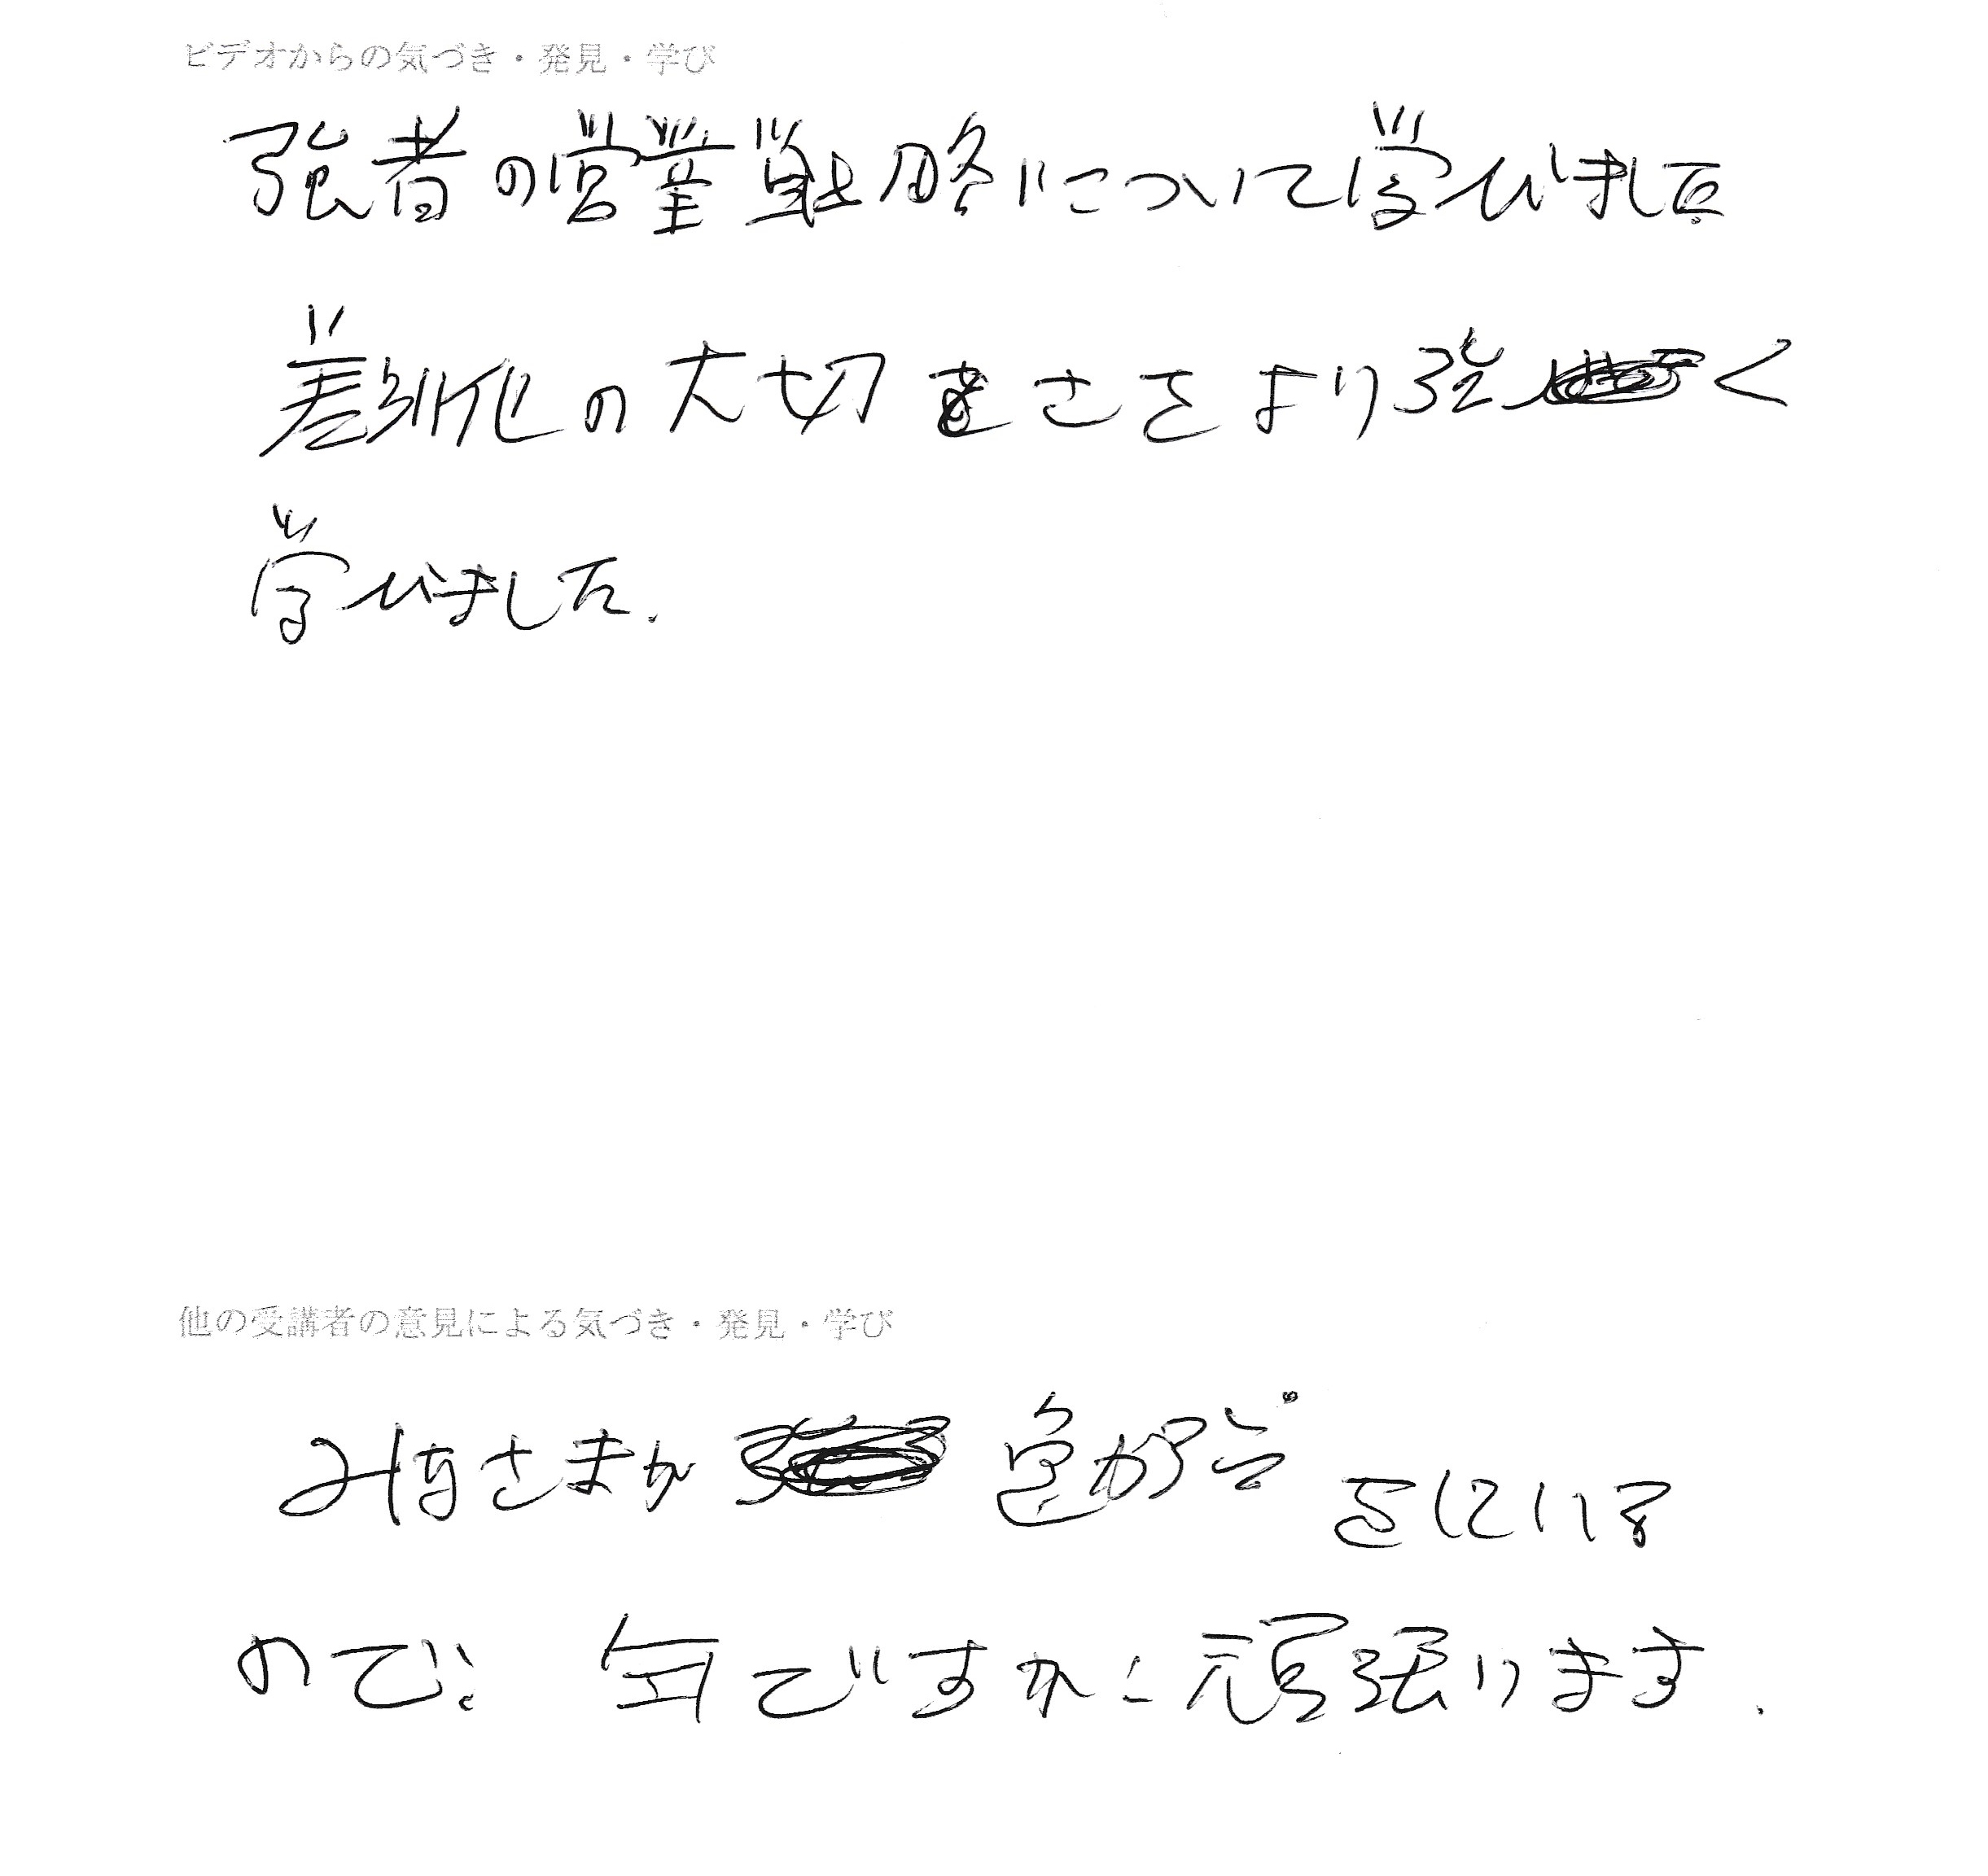 ビデオからの気づき・発見・学び
強者の営業戦略について学びました
差別化の大切ささをより強く
学びました.
他の受講者の意見による気づき・発見・学び
みなさまが
ので 年ですが 頑張ります.